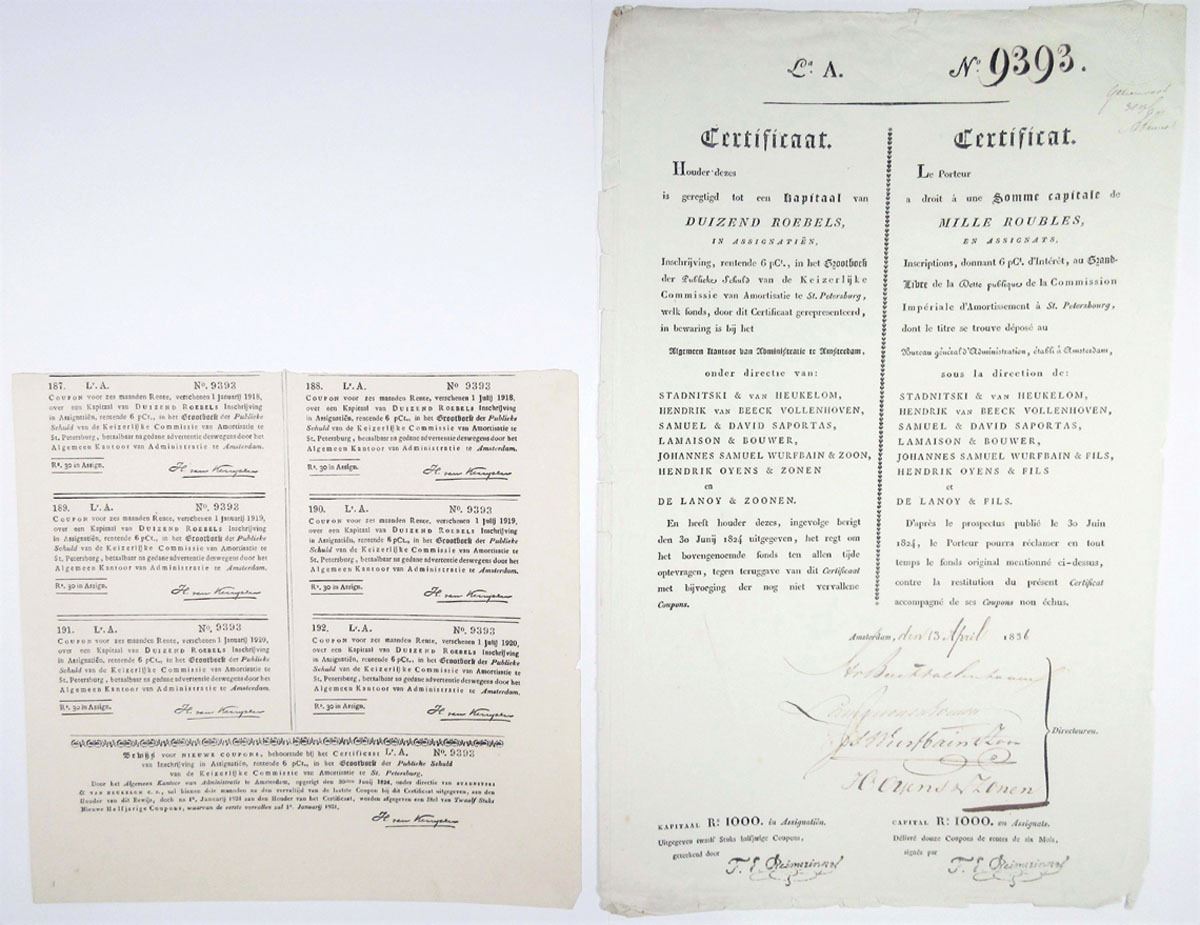 187. Lʳ. A. Nº. 9393
COUPON voor zes maanden Rente, verschenen 1 Januarij 1918,
over een Kapitaal van DUIZEND ROEBELS Inschrijving
in Assignatiën, rentende 6 pCt., in het Grootboek der Publieke
Schuld van de Keizerlijke Commissie van Amortisatie te
St. Petersburg, betaalbaar na gedane advertentie deswegens door het
Algemeen Kantoor van Administratie te Amsterdam.
Rˢ. 30 in Assign.
188. Lʳ. A. Nº 9393
COUPON voor zes maanden Rente, verschenen 1 Julij 1918,
over een Kapitaal van DUIZEND ROEBELS Inschrijving
in Assignatiën, rentende 6 pCt., in het Grootboek der Publieke
Schuld van de Keizerlijke Commissie van Amortisatie te
St. Petersburg, betaalbaar na gedane advertentie deswegens door het
Algemeen Kantoor van Administratie te Amsterdam.
Rˢ. 30 in Assign.
189. Lʳ. A. Nº. 9393
COUPON voor zes maanden Rente, verschenen 1 Januarij 1919,
over een Kapitaal van DUIZEND ROEBELS Inschrijving
in Assignatiën, rentende 6 pCt., in het Grootboek der Publieke
Schuld van de Keizerlijke Commissie van Amortisatie te
St. Petersburg, betaalbaar na gedane advertentie deswegens door het
Algemeen Kantoor van Administratie te Amsterdam.
Rˢ. 30 in Assign.
190. Lʳ. A. Nº. 9393
COUPON voor zes maanden Rente, verschenen 1 Julij 1919,
over een Kapitaal van DUIZEND ROEBELS Inschrijving
in Assignatiën, rentende 6 pCt., in het Grootboek der Publieke
Schuld van de Keizerlijke Commissie van Amortisatie te
St. Petersburg, betaalbaar na gedane advertentie deswegens door het
Algemeen Kantoor van Administratie te Amsterdam.
Rˢ. 30 in Assign.
191. Lʳ. A. Nº. 9393
COUPON voor zes maanden Rente, verschenen 1 Januarij 1920,
over een Kapitaal van DUIZEND ROEBELS Inschrijving
in Assignatiën, rentende 6 pCt., in het Grootboek der Publieke
Schuld van de Keizerlijke Commissie van Amortisatie te
St. Petersburg, betaalbaar na gedane advertentie deswegens door het
Algemeen Kantoor van Administratie te Amsterdam.
Rˢ. 30 in Assign.
192. Lʳ. A. Nº. 9393
COUPON voor zes maanden Rente, verschenen 1 Julij 1920,
over een Kapitaal van DUIZEND ROEBELS Inschrijving
in Assignatiën, rentende 6 pCt., in het Grootboek der Publieke
Schuld van de Keizerlijke Commissie van Amortisatie te
St. Petersburg, betaalbaar na gedane advertentie deswegens door het
Algemeen Kantoor van Administratie te Amsterdam.
Rˢ. 30 in Assign.
Bewijs voor NIEUWE COUPONS, behoorende bij het Certificaat Lʳ. A. Nº 9393
van Inschrijving in Assignatiën, rentende 6 pCt., in het Grootboek der Publieke Schuld
van de Keizerlijke Commissie van Amortisatie te St. Petersburg,
Door het Algemeen Kantoor van Administratie te Amsterdam, opgerigt den 30sten Junij 1824, onder directie van STADNITSKI
& VAN HEUKELOM c. s., zal binnen drie maanden na den vervaltijd van de laatste Coupon bij dit Certificaat uitgegeven, aan den
Houder van dit Bewijs, doch na 1º. Januarij 1921 aan den Houder van het Certificaat, worden afgegeven een Stel van Twaalf Stuks
Nieuwe Halfjarige Coupons, waarvan de eerste vervallen zal 1º. Januarij 1921.
Lᵃ A. Nº 9393.
Certificaat.
Houder dezes
is geregtigd tot een Kapitaal van
DUIZEND ROEBELS,
IN ASSIGNATIËN,
Inschrijving, rentende 6 pCt., in het Grootboek
der Publieke Schuld van de Keizerlijke
Commissie van Amortisatie te St. Petersburg,
welk fonds, door dit Certificaat gerepresenteerd,
in bewaring is bij het
Algemeen Kantoor van Administratie te Amsterdam,
onder directie van:
STADNITSKI & VAN HEUKELOM,
HENDRIK VAN BEECK VOLLENHOVEN,
SAMUEL & DAVID SAPORTAS,
LAMAISON & BOUWER,
JOHANNES SAMUEL WURFBAIN & ZOON,
HENDRIK OYENS & ZONEN
en
DE LANOY & ZOONEN.
En heeft houder dezes, ingevolge berigt
den 30 Junij 1824 uitgegeven, het regt om
het bovengenoemde fonds ten allen tijde
optevragen, tegen teruggave van dit Certificaat
met bijvoging der nog niet vervallene
Coupons.
Certificat.
Le Porteur
a droit à une Somme capitale de
MILLE ROUBLES,
EN ASSIGNATS,
Inscriptions, donnant 6 pCt. d'Intérêt, au Grand-
Libre de la Dette publique de la Commission
Impériale d'Amortissement à St. Petersbourg,
dont le titre se trouve déposé au
Bureau général d'Administration, établi à Amsterdam,
sous la direction de:
STADNITSKI & VAN HEUKELOM,
HENDRIK VAN BEECK VOLLENHOVEN,
SAMUEL & DAVID SAPORTAS,
LAMAISON & BOUWER,
JOHANNES SAMUEL WURFBAIN & FILS,
HENDRIK OYENS & FILS
et
DE LANOY & FILS.
D'après le prospectus publié le 30 Juin
1824, le Porteur pourra réclamer en tout
temps le fonds original mentionné ci-dessus,
contre la restitution du présent Certificat
accompagné de ses Coupons non échus.
Amsterdam, den 13 April 1836
JS Wurfbain & Zoon
H Oyens & Zonen
Directeuren.
KAPITAAL Rˢ. 1000. in Assignatiën.
Uitgegeven twaalf Stuks halfjarige Coupons,
geteekend door
CAPITAL Rˢ. 1000. en Assignats.
Délivré douze Coupons de rentes de six Mois,
signés par